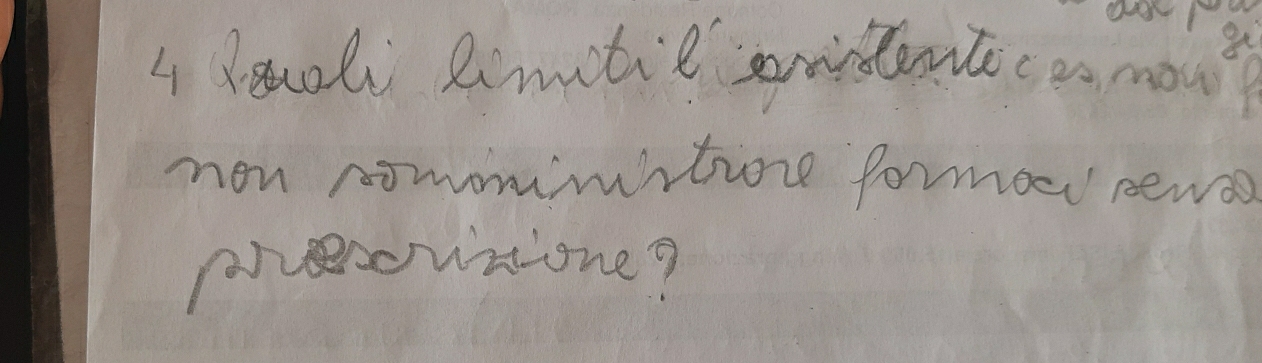 4 Quali limiti l'assistente (es. non
non somministrare farmaci senza
prescrizione?